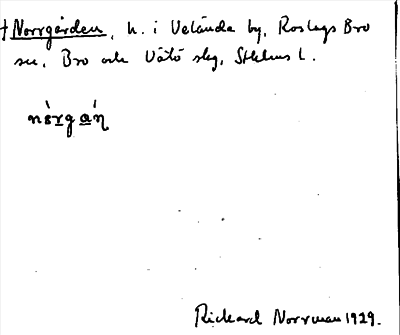 † Norrgården, h. i Velända by, Roslags Bro
sn, Bro och Vätö slg, Sthlms l.
Rickard Norrman 1929.